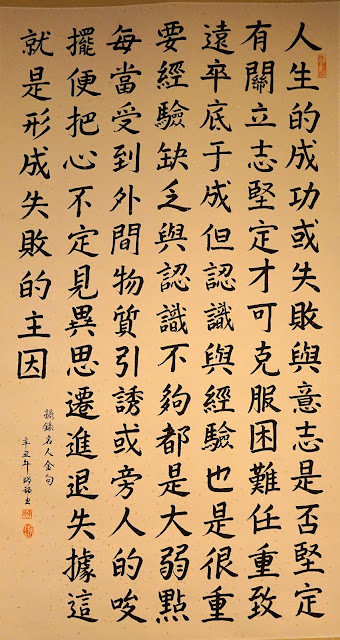 人生的成功或失敗與意志是否堅定
有關立志堅定才可克服困難任重致
遠卒底于成但認識與經驗也是很重
要經驗缺乏與認識不夠都是大弱點
每當受到外間物質引誘或旁人的唆
擺便把心不定見異思遷進退失據這
就是形成失敗的主因
摘錄名人金句
辛丑年